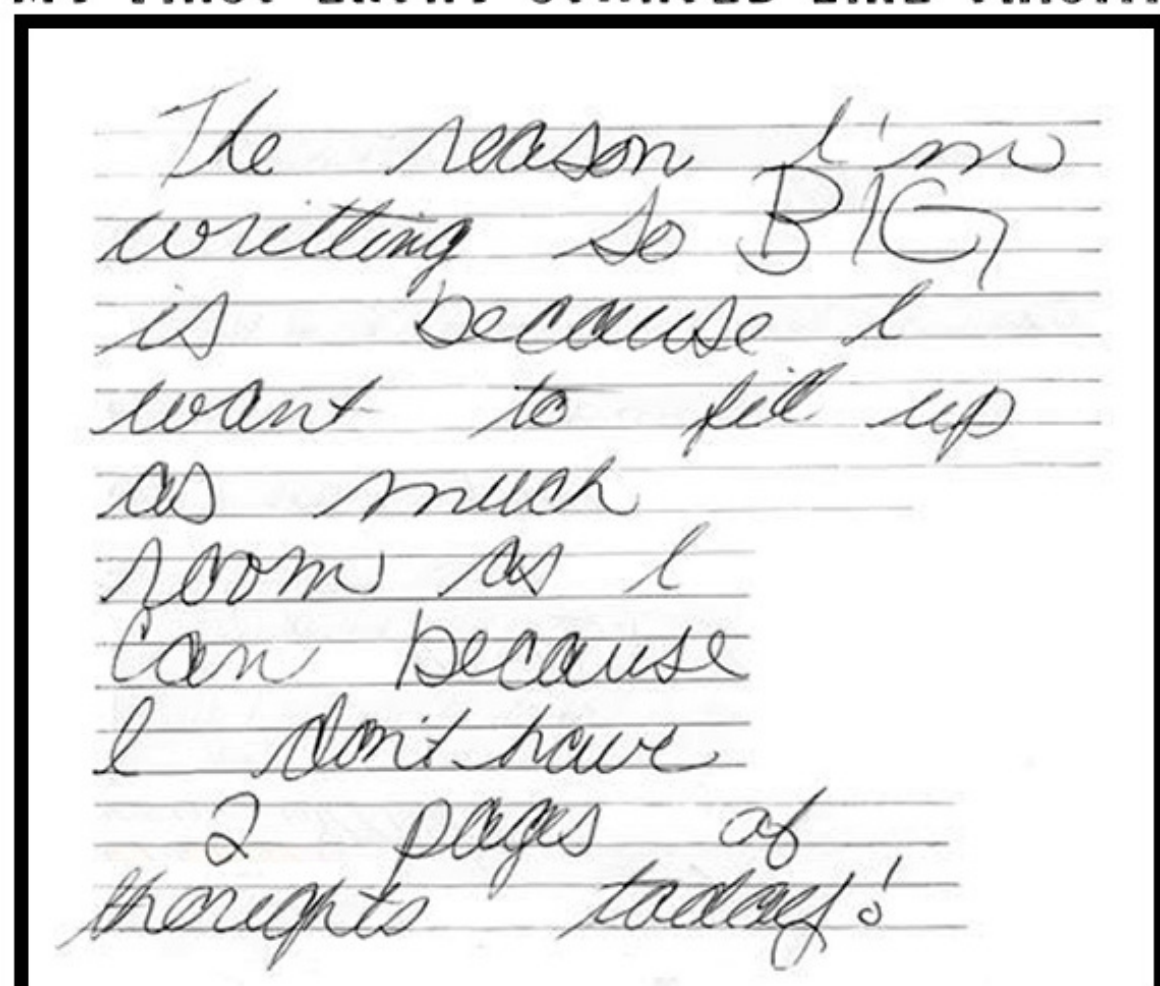 The reason I'm
writting so BIG,
is because I
want to fill up
as much
room as I
can because
I don't have
2 pages of
thoughts today!